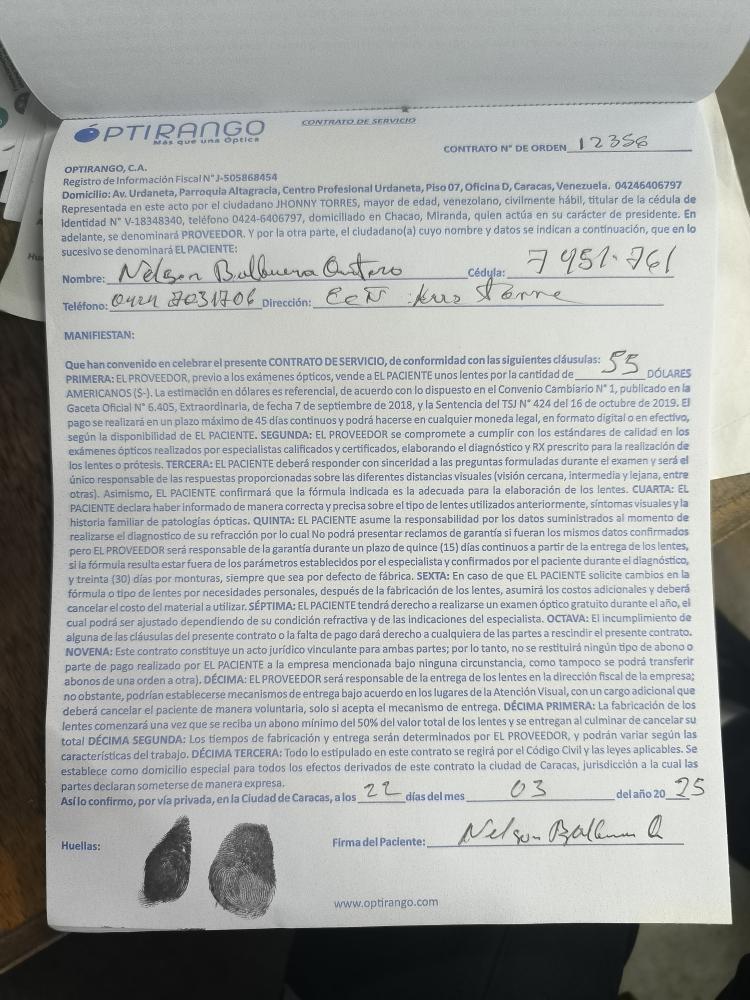 OPTIRANGO
Más que una Óptica
CONTRATO DE SERVICIO
CONTRATO N° DE ORDEN 12356
OPTIRANGO, C.A.
Registro de Información Fiscal N° J-505868454
Domicilio: Av. Urdaneta, Parroquia Altagracia, Centro Profesional Urdaneta, Piso 07, Oficina D, Caracas, Venezuela. 04246406797
Representada en este acto por el ciudadano JHONNY TORRES, mayor de edad, venezolano, civilmente hábil, titular de la cédula de
identidad N° V-18348340, teléfono 0424-6406797, domiciliado en Chacao, Miranda, quien actúa en su carácter de presidente. En
adelante, se denominará PROVEEDOR. Y por la otra parte, el ciudadano(a) cuyo nombre y datos se indican a continuación, que en lo
sucesivo se denominará EL PACIENTE:
Nombre: Nelson Balbuena Cédula: 7 951.761
Teléfono: 0424 7031706 Dirección:
MANIFIESTAN:
Que han convenido en celebrar el presente CONTRATO DE SERVICIO, de conformidad con las siguientes cláusulas: 55
PRIMERA: EL PROVEEDOR, previo a los exámenes ópticos, vende a EL PACIENTE unos lentes por la cantidad de DÓLARES
AMERICANOS ($-). La estimación en dólares es referencial, de acuerdo con lo dispuesto en el Convenio Cambiario N° 1, publicado en la
Gaceta Oficial N° 6.405, Extraordinaria, de fecha 7 de septiembre de 2018, y la Sentencia del TSJ N° 424 del 16 de octubre de 2019. El
pago se realizará en un plazo máximo de 45 días continuos y podrá hacerse en cualquier moneda legal, en formato digital o en efectivo,
según la disponibilidad de EL PACIENTE. SEGUNDA: EL PROVEEDOR se compromete a cumplir con los estándares de calidad en los
exámenes ópticos realizados por especialistas calificados y certificados, elaborando el diagnóstico y RX prescrito para la realización de
los lentes o prótesis. TERCERA: EL PACIENTE deberá responder con sinceridad a las preguntas formuladas durante el examen y será el
único responsable de las respuestas proporcionadas sobre las diferentes distancias visuales (visión cercana, intermedia y lejana, entre
otras). Asimismo, EL PACIENTE confirmará que la fórmula indicada es la adecuada para la elaboración de los lentes. CUARTA: EL
PACIENTE declara haber informado de manera correcta y precisa sobre el tipo de lentes utilizados anteriormente, síntomas visuales y la
historia familiar de patologías ópticas. QUINTA: EL PACIENTE asume la responsabilidad por los datos suministrados al momento de
realizarse el diagnostico de su refracción por lo cual No podrá presentar reclamos de garantía si fueran los mismos datos confirmados
pero EL PROVEEDOR será responsable de la garantía durante un plazo de quince (15) días continuos a partir de la entrega de los lentes,
si la fórmula resulta estar fuera de los parámetros establecidos por el especialista y confirmados por el paciente durante el diagnóstico,
y treinta (30) días por monturas, siempre que sea por defecto de fábrica. SEXTA: En caso de que EL PACIENTE solicite cambios en la
fórmula o tipo de lentes por necesidades personales, después de la fabricación de los lentes, asumirá los costos adicionales y deberá
cancelar el costo del material a utilizar. SÉPTIMA: EL PACIENTE tendrá derecho a realizarse un examen óptico gratuito durante el año, el
cual podrá ser ajustado dependiendo de su condición refractiva y de las indicaciones del especialista. OCTAVA: El incumplimiento de
alguna de las cláusulas del presente contrato o la falta de pago dará derecho a cualquiera de las partes a rescindir el presente contrato.
NOVENA: Este contrato constituye un acto jurídico vinculante para ambas partes; por lo tanto, no se restituirá ningún tipo de abono o
parte de pago realizado por EL PACIENTE a la empresa mencionada bajo ninguna circunstancia, como tampoco se podrá transferir
abonos de una orden a otra). DÉCIMA: EL PROVEEDOR será responsable de la entrega de los lentes en la dirección fiscal de la empresa;
no obstante, podrían establecerse mecanismos de entrega bajo acuerdo en los lugares de la Atención Visual, con un cargo adicional que
deberá cancelar el paciente de manera voluntaria, solo si acepta el mecanismo de entrega. DÉCIMA PRIMERA: La fabricación de los
lentes comenzará una vez que se reciba un abono mínimo del 50% del valor total de los lentes y se entregan al culminar de cancelar su
total DÉCIMA SEGUNDA: Los tiempos de fabricación y entrega serán determinados por EL PROVEEDOR, y podrán variar según las
características del trabajo. DÉCIMA TERCERA: Todo lo estipulado en este contrato se regirá por el Código Civil y las leyes aplicables. Se
establece como domicilio especial para todos los efectos derivados de este contrato la ciudad de Caracas, jurisdicción a la cual las
partes declaran someterse de manera expresa.
Así lo confirmo, por vía privada, en la Ciudad de Caracas, a los 22 días del mes 03 del año 20 25
Huellas:
Firma del Paciente: Nelson
www.optirango.com